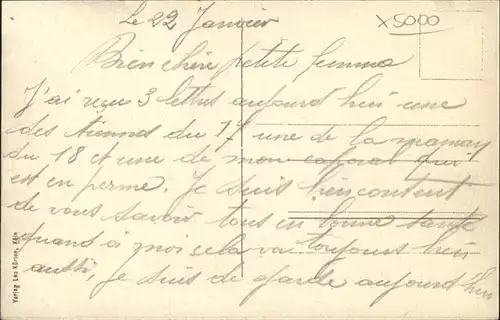 Le 22 Janvier
X5000
Bien chère petite femme
J'ai reçu 3 lettres aujourd'hui une
des tiennes du 17 une de la maman
du 18 et une de mon caporal qui
est en perme. Je suis bien content
de vous savoir tous en bonne santé
quand à moi cela va toujours bien
aussi, je suis de garde aujourd'hui
Verlag Leo Körner, Köln